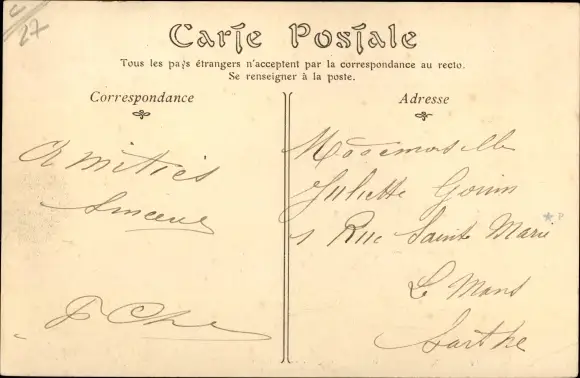 27
Carte Postale
Tous les pays étrangers n'acceptent par la correspondance au recto.
Se renseigner à la poste.
Correspondance
Amitiés
Sincères
Adresse
Mademoiselle
Juliette
1 Rue Sainte Marie
Le Mans
Sarthe